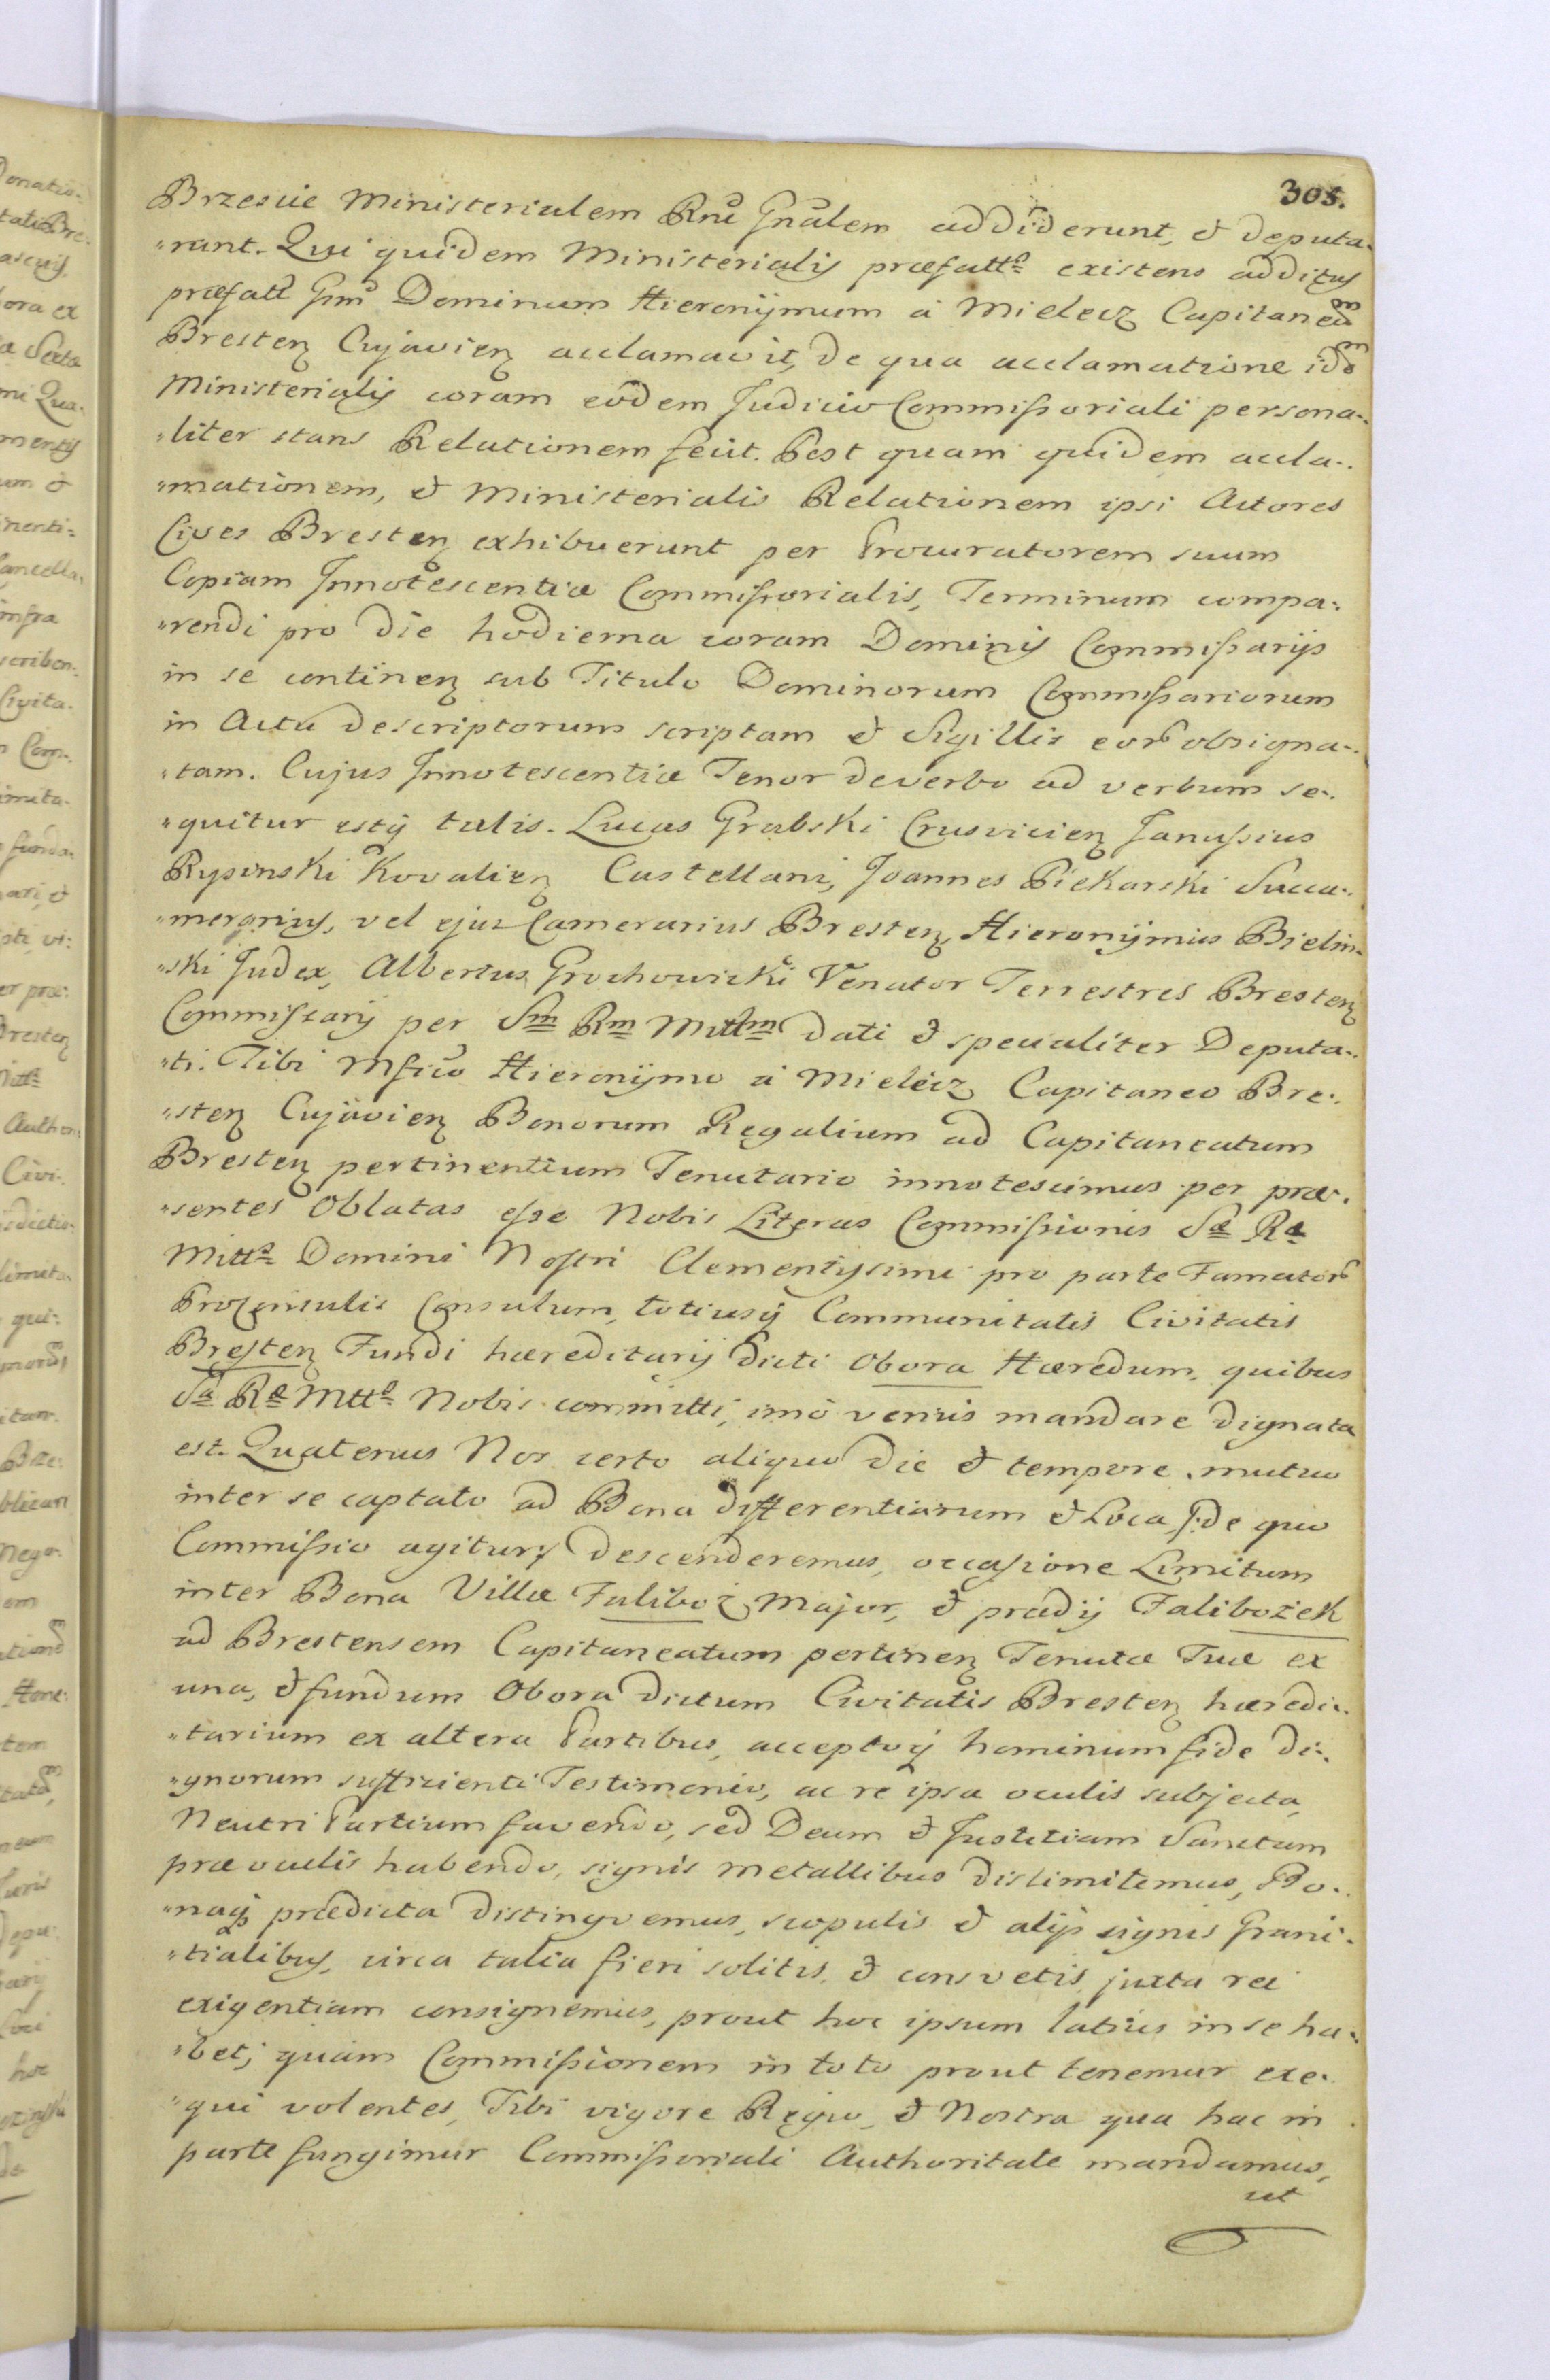 305.
Brzescie Ministerialem Rnĩ Gnãlem addiderunt, & deputa-
"rant. Qui quidem Ministerialis præfatt⁰ existens additus
præfatt Gm̃ Dominum Hieronÿmum à Mielecz Capitaneũm
Bresteȵ Cujavieȵ acclamavit, de qua acclamatione id̃m
Ministerialis coram eõdem Judicio Commissoriali persona-
"liter stans Relationem fecit. Post quam quidem accla-
"mationem, & Ministerialis Relationem ipsi Actores
Cives Bresteȵ exhibuerunt per Procuratorem suum
Copiam Innotescentiæ Commissorialis, Terminum compa:
"rendi pro die hodierna coram Dominis Commissarijs
in se contineȵ sub Titulo Dominorum Commissariorum
in Actu descriptorum scriptam & Sigillis eor̃ obsigna-
"tam. Cujus Innotescentiæ Tenor de verbo ad verbum se-
"quitur estq̃ talis. Lucas Grabski Crusvicieȵ Janussius
Rypinski Kovalieȵ Castellani, Joannes Piekarski Succa-
"merarius, vel ejus Camerarius Bresteȵ, Hieronÿmus Bielin-
"ski Judex, Albertus Grochowicki Venator Terrestres Bresteȵ
Commissarij per Sm̃ Rm̃ Mttm̃ dati & specialiter Deputa-
"ti. Tibi Mfico Hieronÿmo à Mielecz Capitaneo Bre-
"steȵ Cujavieȵ Bonorum Regalium ad Capitaneatum
Bresteȵ pertinentium Tenutario innotescimus per præ-
"sentes Oblatas esse Nobis Literas Commissionis Sæ Ræ
Mtt⁰ Domini Nostri Clementissimi pro parte Famator̃
Proconsulis Consulum, totiusq̃ Communitatis Civitatis
Bresteȵ Fundi hæreditarij dicti Obora Hæredum, quibus
Sa Ra Mtt⁰ Nobis committi, imò verius mandare dignata
est. Quatenus Nos certo aliquo die & tempore, mutuo
inter se captato ad Bona differentiarum & Loca /:de quo
Commissio agitur:/ descenderemus, occasione Limitum
inter Bona Villæ Faliboż Major, & prædij Falibożek
ad Brestensem Capitaneatum pertineȵ Tenutæ Tuæ ex
una, & fundum Obora dictum Civitatis Bresteȵ hæredi-
"tarium ex altera Partibus, acceptoq̃ hominum fide di-
"gnorum sufficienti Testimonio, ac re ipsa oculis subjecta,
Neutri Partium favendo, sed Deum & Justitiam Sanctam
præ oculis habendo, signis metallibus dislimitemus, Bo-
"naq̃ prædicta distinguemus, scopulis & alijs signis Grani-
"tialibus, circa talia fieri solitis, & consvetis juxta rei
exigentiam consignemus, prout hoc ipsum latius in se ha:
"bet; quam Commissionem in toto prout tenemur exe-
"qui volentes, Tibi vigore Regio, & Nostra qua hac in
parte fungimur Commissoriali Authoritate mandamus,
ut